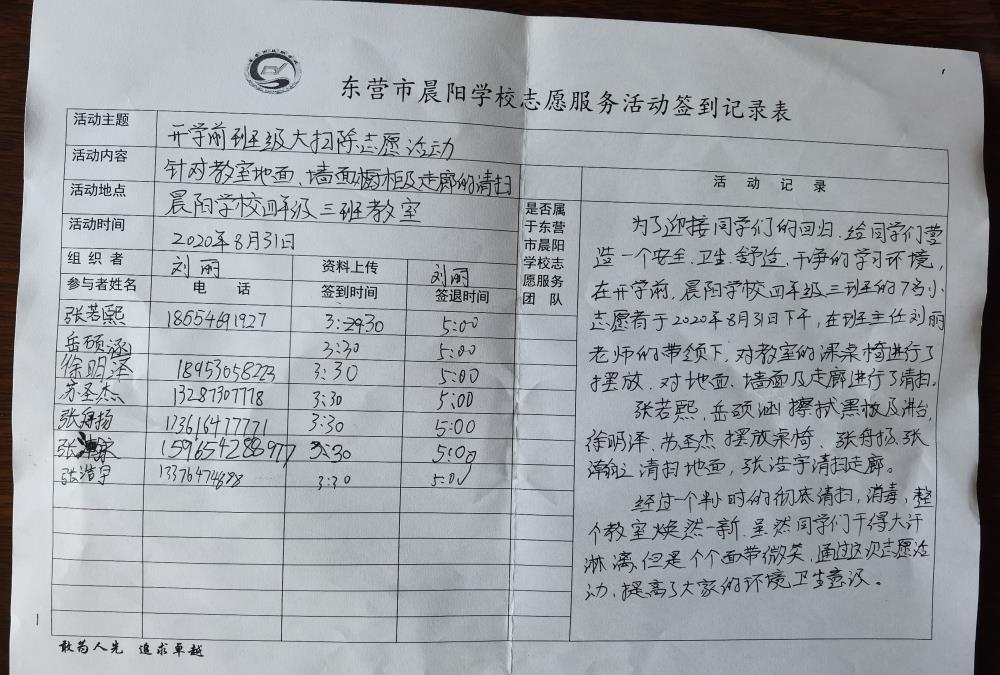 东营市晨阳学校志愿服务活动签到记录表
活动主题 开学前班级大扫除志愿活动
活动内容 针对教室地面、墙面橱柜及走廊的清扫
活动地点 晨阳学校四年级三班教室
活动时间 2020年8月31日
组织者 刘丽 资料上传 刘丽
参与者姓名 电话 签到时间 签退时间
是否属
于东营
市晨阳
学校志
愿服务
团队
张若熙 18654691927 3:30 5:00
岳硕涵 3:30 5:00
徐明泽 18953658223 3:30 5:00
苏圣杰 13287307778 3:30 5:00
张舟扬 17361647771 3:30 5:00
张 159654288977 3:30 5:00
张浩宇 3:30 5:00
活动记录
为了迎接同学们的回归、给同学们营
造一个安全、卫生、舒适、干净的学习环境,
在开学前,晨阳学校四年级三班的7名小
志愿者于2020年8月31日下午,在班主任刘丽
老师的带领下,对教室的课桌椅进行了
摆放、对地面、墙面及走廊进行了清扫。
张若熙、岳硕涵擦拭黑板及讲台,
徐明泽、苏圣杰摆放桌椅、张舟扬、张
清扫地面,张浩宇清扫走廊。
经过一个半小时的彻底清扫,消毒,整
个教室焕然一新,虽然同学们干得大汗
淋漓,但是个个面带微笑,通过这次志愿活
动,提高了大家的环境卫生意识。
敢为人先 追求卓越